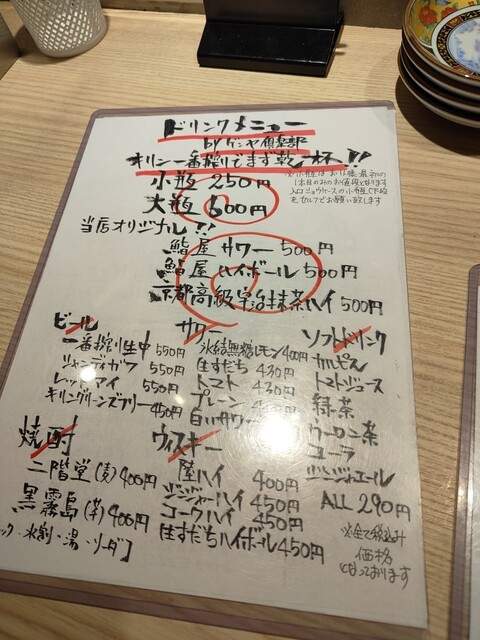 ドリンクメニュー
by ゲンヤ倶楽部
キリン一番搾りでまず乾杯!!
小瓶 250円
大瓶 600円
※小瓶はお1人様最初の
1本目のみのお値段となります
入口ショウケースの小瓶(下段)
をセルフでお願い致します
当店オリジナル!!
鮨屋サワー 500円
鮨屋ハイボール 500円
京都高級宇治抹茶ハイ 500円
ビール
一番搾り生中 550円
シャンディガフ 550円
レッドアイ 550円
キリングリーンズフリー 450円
焼酎
二階堂(麦) 400円
黒霧島(芋) 400円
ック・水割・湯・ソーダ]
サワー
氷結無糖レモン 400円
生すだち 430円
トマト 430円
プレーン
白いサワー
ウィスキー
陸ハイ 400円
ジンジャーハイ 450円
コークハイ 450円
生すだちハイボール 450円
ソフトドリンク
カルピス
トマトジュース
緑茶
ウーロン茶
コーラ
ジンジャエール
ALL 290円
※全て税込み
価格
となっております